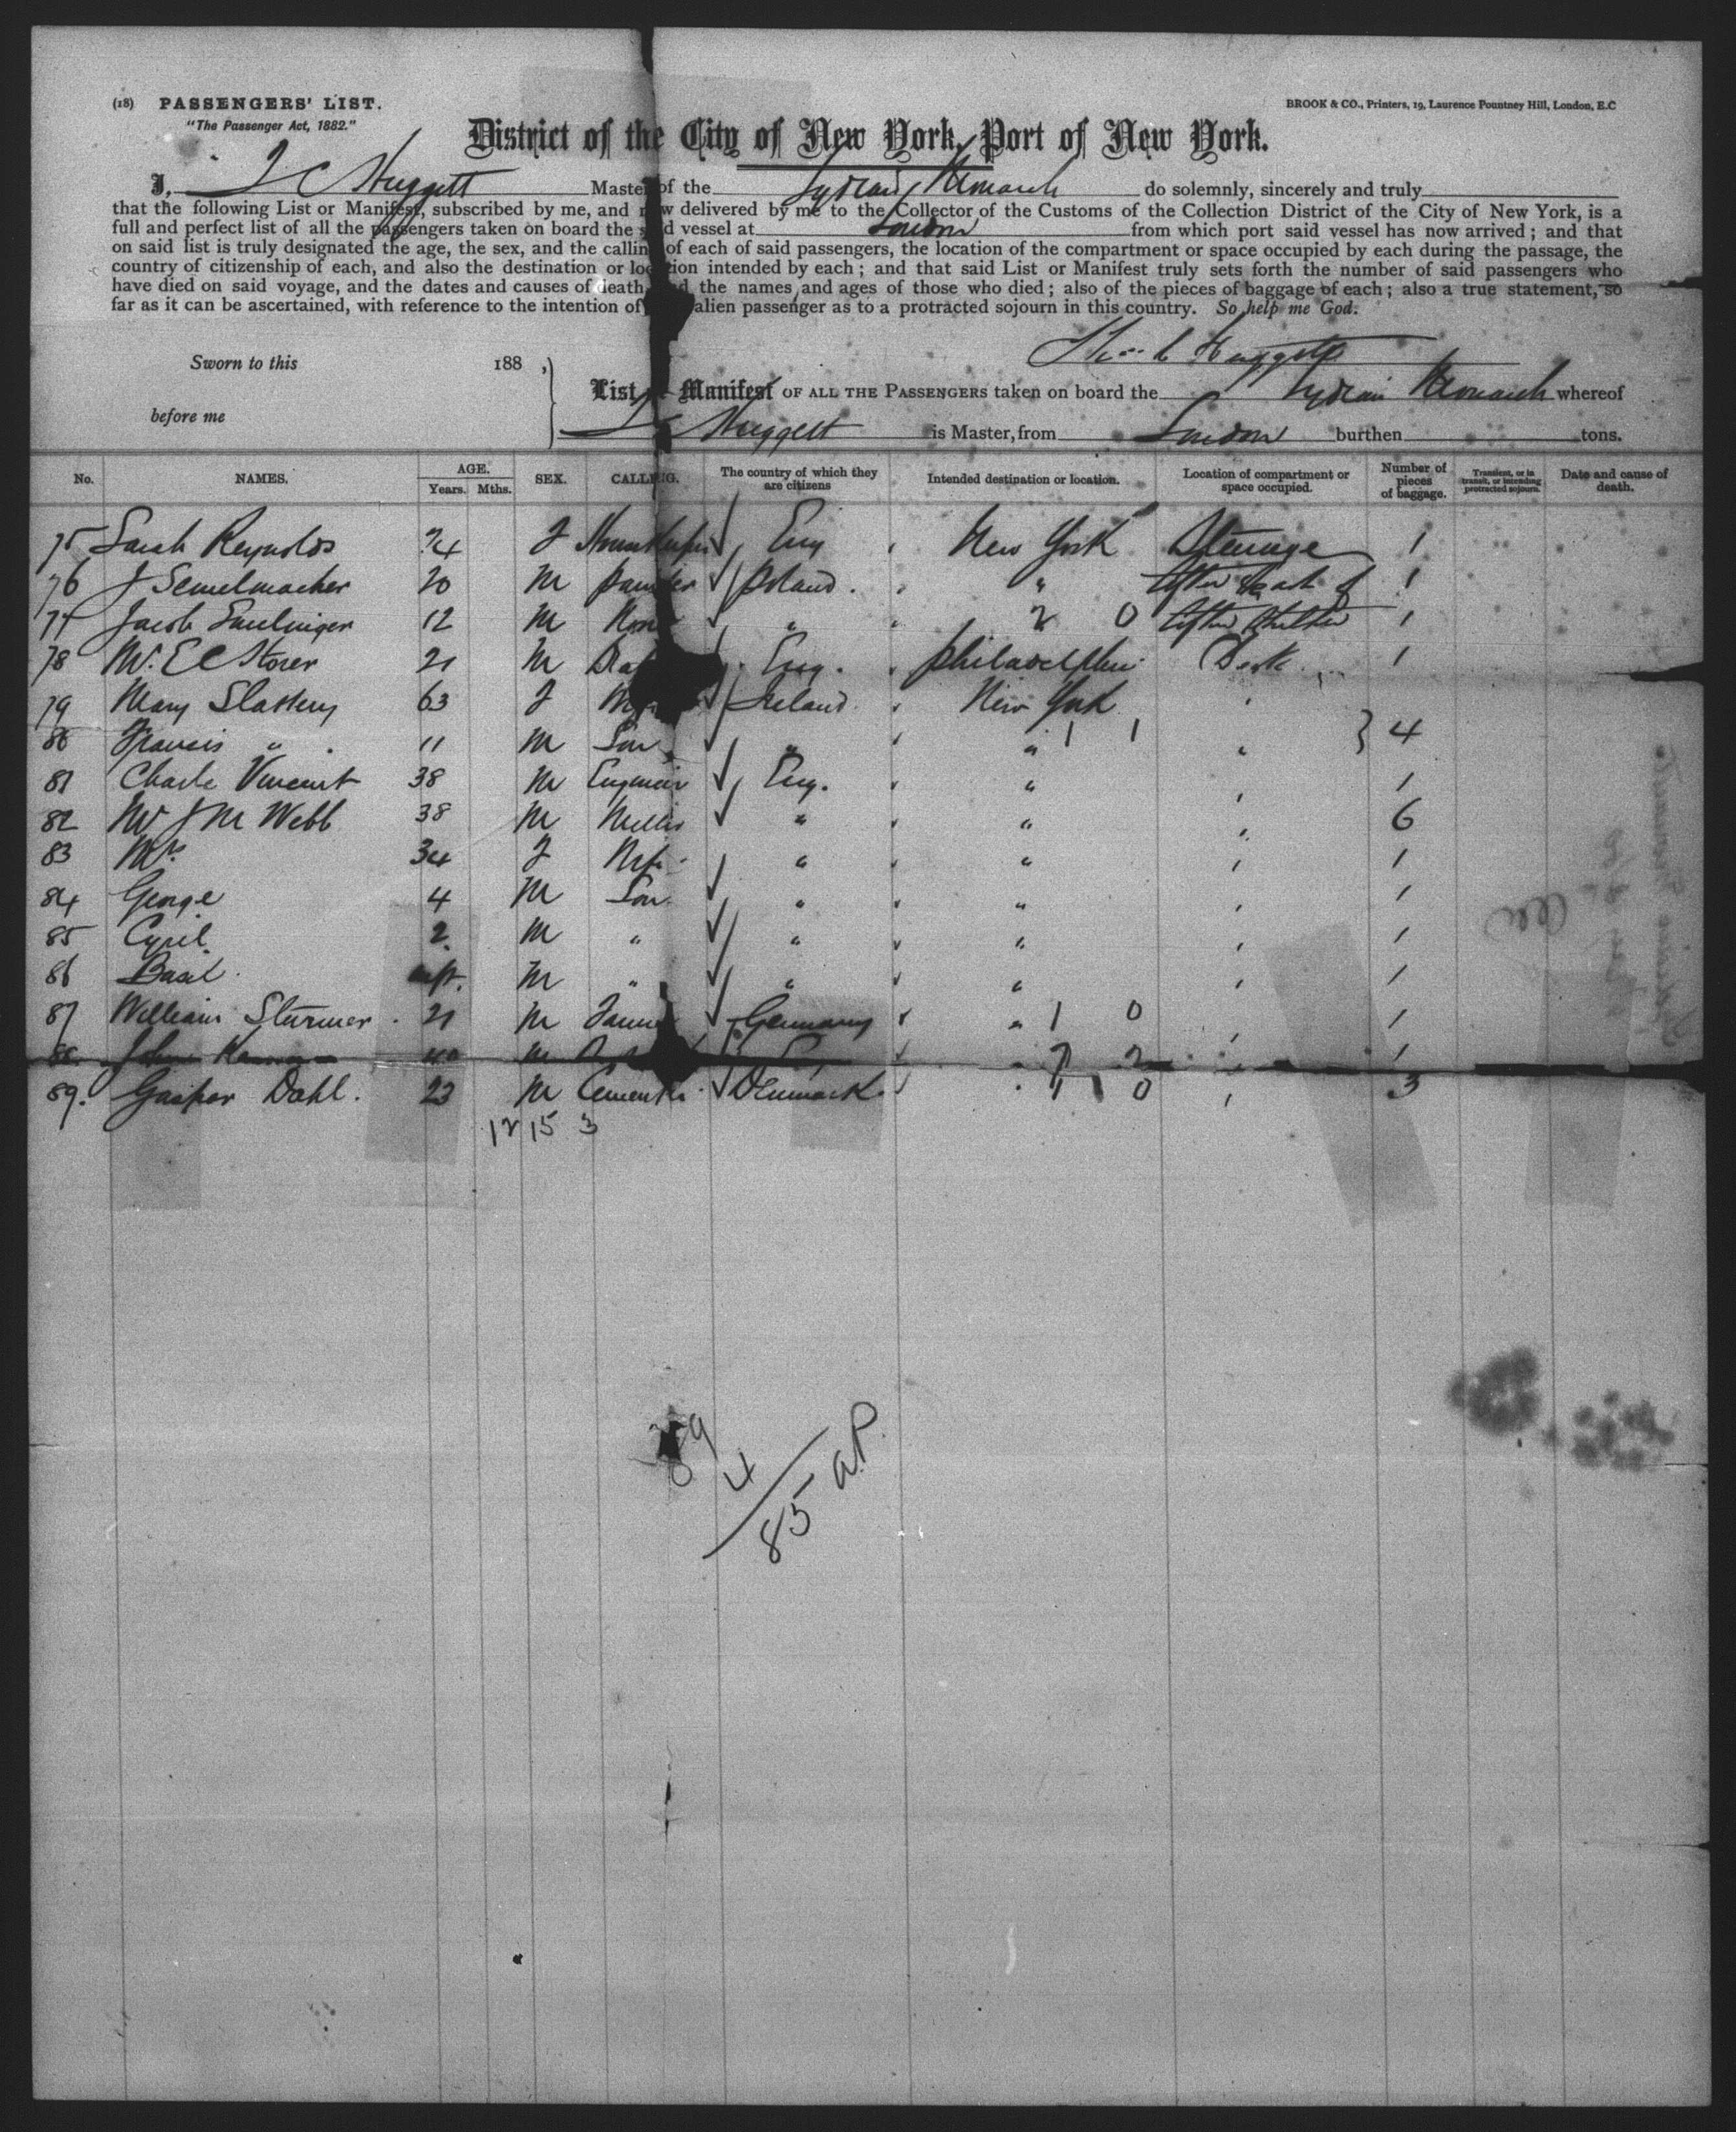 (18) PASSENGERS' LIST.
BROOK & CO., Printers, 19, Laurence Pountney Hill, London, E.C
"The Passenger Act, 1882."
District of the City of New York, Port of New York.
I, Huggett Master of the Lydian Monarch do solemnly, sincerely and truly
that the following List or Manifest, subscribed by me, and now delivered by me to the Collector of the Customs of the Collection District of the City of New York, is a
full and perfect list of all the passengers taken on board the said vessel at London from which port said vessel has now arrived; and that
on said list is truly designated the age, the sex, and the calling of each of said passengers, the location of the compartment or space occupied by each during the passage, the
country of citizenship of each, and also the destination or location intended by each; and that said List or Manifest truly sets forth the number of said passengers who
have died on said voyage, and the dates and causes of death, and the names and ages of those who died; also of the pieces of baggage of each; also a true statement, so
far as it can be ascertained, with reference to the intention of alien passenger as to a protracted sojourn in this country. So help me God.
Huggett
Sworn to this 188 ,
List or Manifest OF ALL THE PASSENGERS taken on board the Lydian Monarch whereof
before me
Huggett is Master, from London burthen tons.
No. NAMES. AGE. Years. Mths. SEX. CALLING. The country of which they are citizens Intended destination or location. Location of compartment or space occupied. Number of pieces of baggage. Transient, or in transit, or intending protracted sojourn. Date and cause of death.
75 Sarah Reynolds 24 F Eng New York Steerage 1
76 J Semelmacher 20 M Poland. " 1
77 Jacob 12 M None " 2 0 After 1
78 Mr. E C Storer 21 M Eng. Philadelphia Deck 1
79 Mary Slattery 63 F Ireland. New York
80 Francis " 11 M Son " " 1 1 4
81 Charle Vincent 38 M Engineer Eng. " 1
82 Mr J M Webb 38 M " " 6
83 Mrs 34 F Wife " " 1
84 George 4 M Son " " 1
85 Cyril 2 M " " " 1
86 Basil Inft. M " " " 1
87 William Sturmer 21 M Germany " 1 0 1
88 John 40 M 2 1
89. Gaspar Dahl. 23 M Denmark. 1 0 3
12 15 3
89
4
85 a.P.